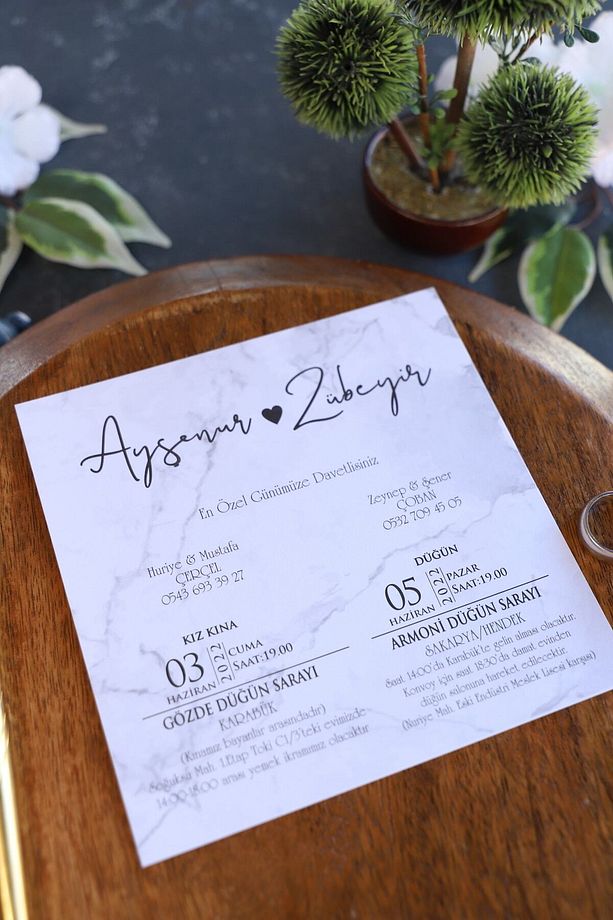 Ayşenur ♥ Zübeyir
En Özel Günümüze Davetlisiniz
Huriye & Mustafa
ÇERÇEL
0543 693 39 27
Zeynep & Şener
ÇOBAN
0532 709 45 05
KIZ KINA
03 HAZİRAN 2022 CUMA SAAT:19.00
GÖZDE DÜĞÜN SARAYI
KARABÜK
(Kınamız bayanlar arasındadır)
Soğuksu Mah. 1.Etap Toki C1/3'teki evimizde
14:00-18:00 arası yemek ikramımız olacaktır
DÜĞÜN
05 HAZİRAN 2022 PAZAR SAAT:19.00
ARMONİ DÜĞÜN SARAYI
SAKARYA/HENDEK
Saat 14:00'da Karabük'te gelin alması olacaktır.
Konvoy için saat 18:30'da damat evinden
düğün salonuna hareket edilecektir.
(Nuriye Mah. Eski Endüstri Meslek Lisesi karşısı)